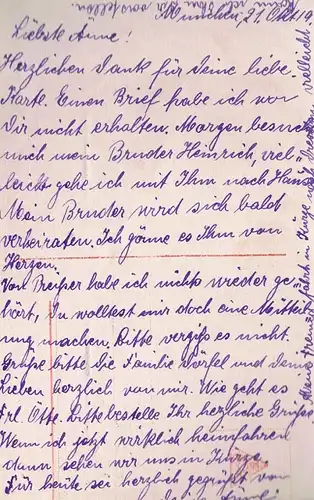 München, 21. Okt. 19
Liebste Änne!
Herzlichen Dank für Deine liebe
Karte. Einen Brief habe ich vor
Dir nicht erhalten. Morgen besucht
mich mein Bruder Heinrich, viel-
leicht gehe ich mit Ihm nach Haus
Mein Bruder wird sich bald
verheiraten. Ich gönne es Ihm von
Herzen.
Von Preußer habe ich nichts wieder ge-
hört, Du wolltest mir doch eine Mitteil-
ung machen. Bitte vergiß es nicht.
Grüße bitte die Familie Wörfel und Deine
Lieben herzlich von mir. Wie geht es
Frl. Otte. Bitte bestelle Ihr herzliche Grüße.
Wenn ich jetzt wirklich heimfahren
dann sehen wir uns in Kürze.
Für heute sei herzlich gegrüßt von
fährt in Kürze nach Dresden vielleicht.